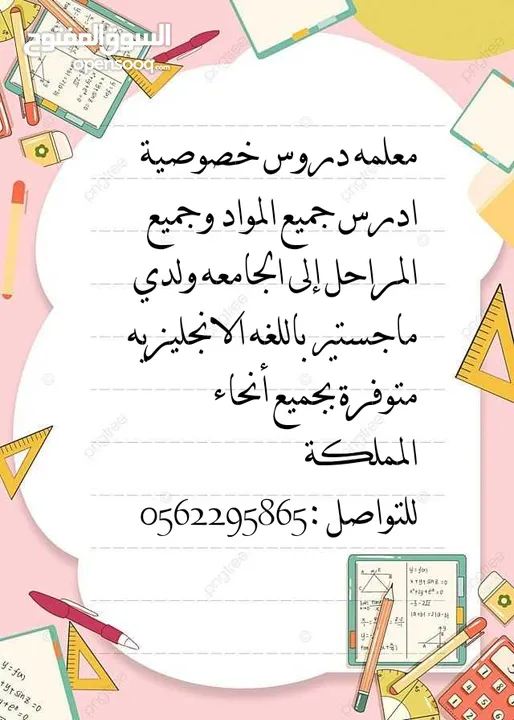 السوق المفتوح
opensooq.com
معلمه دروس خصوصية
ادرس جميع المواد وجميع
المراحل إلى الجامعه ولدي
ماجستير باللغه الانجليزيه
متوفرة بجميع أنحاء
المملكة
للتواصل :0562295865